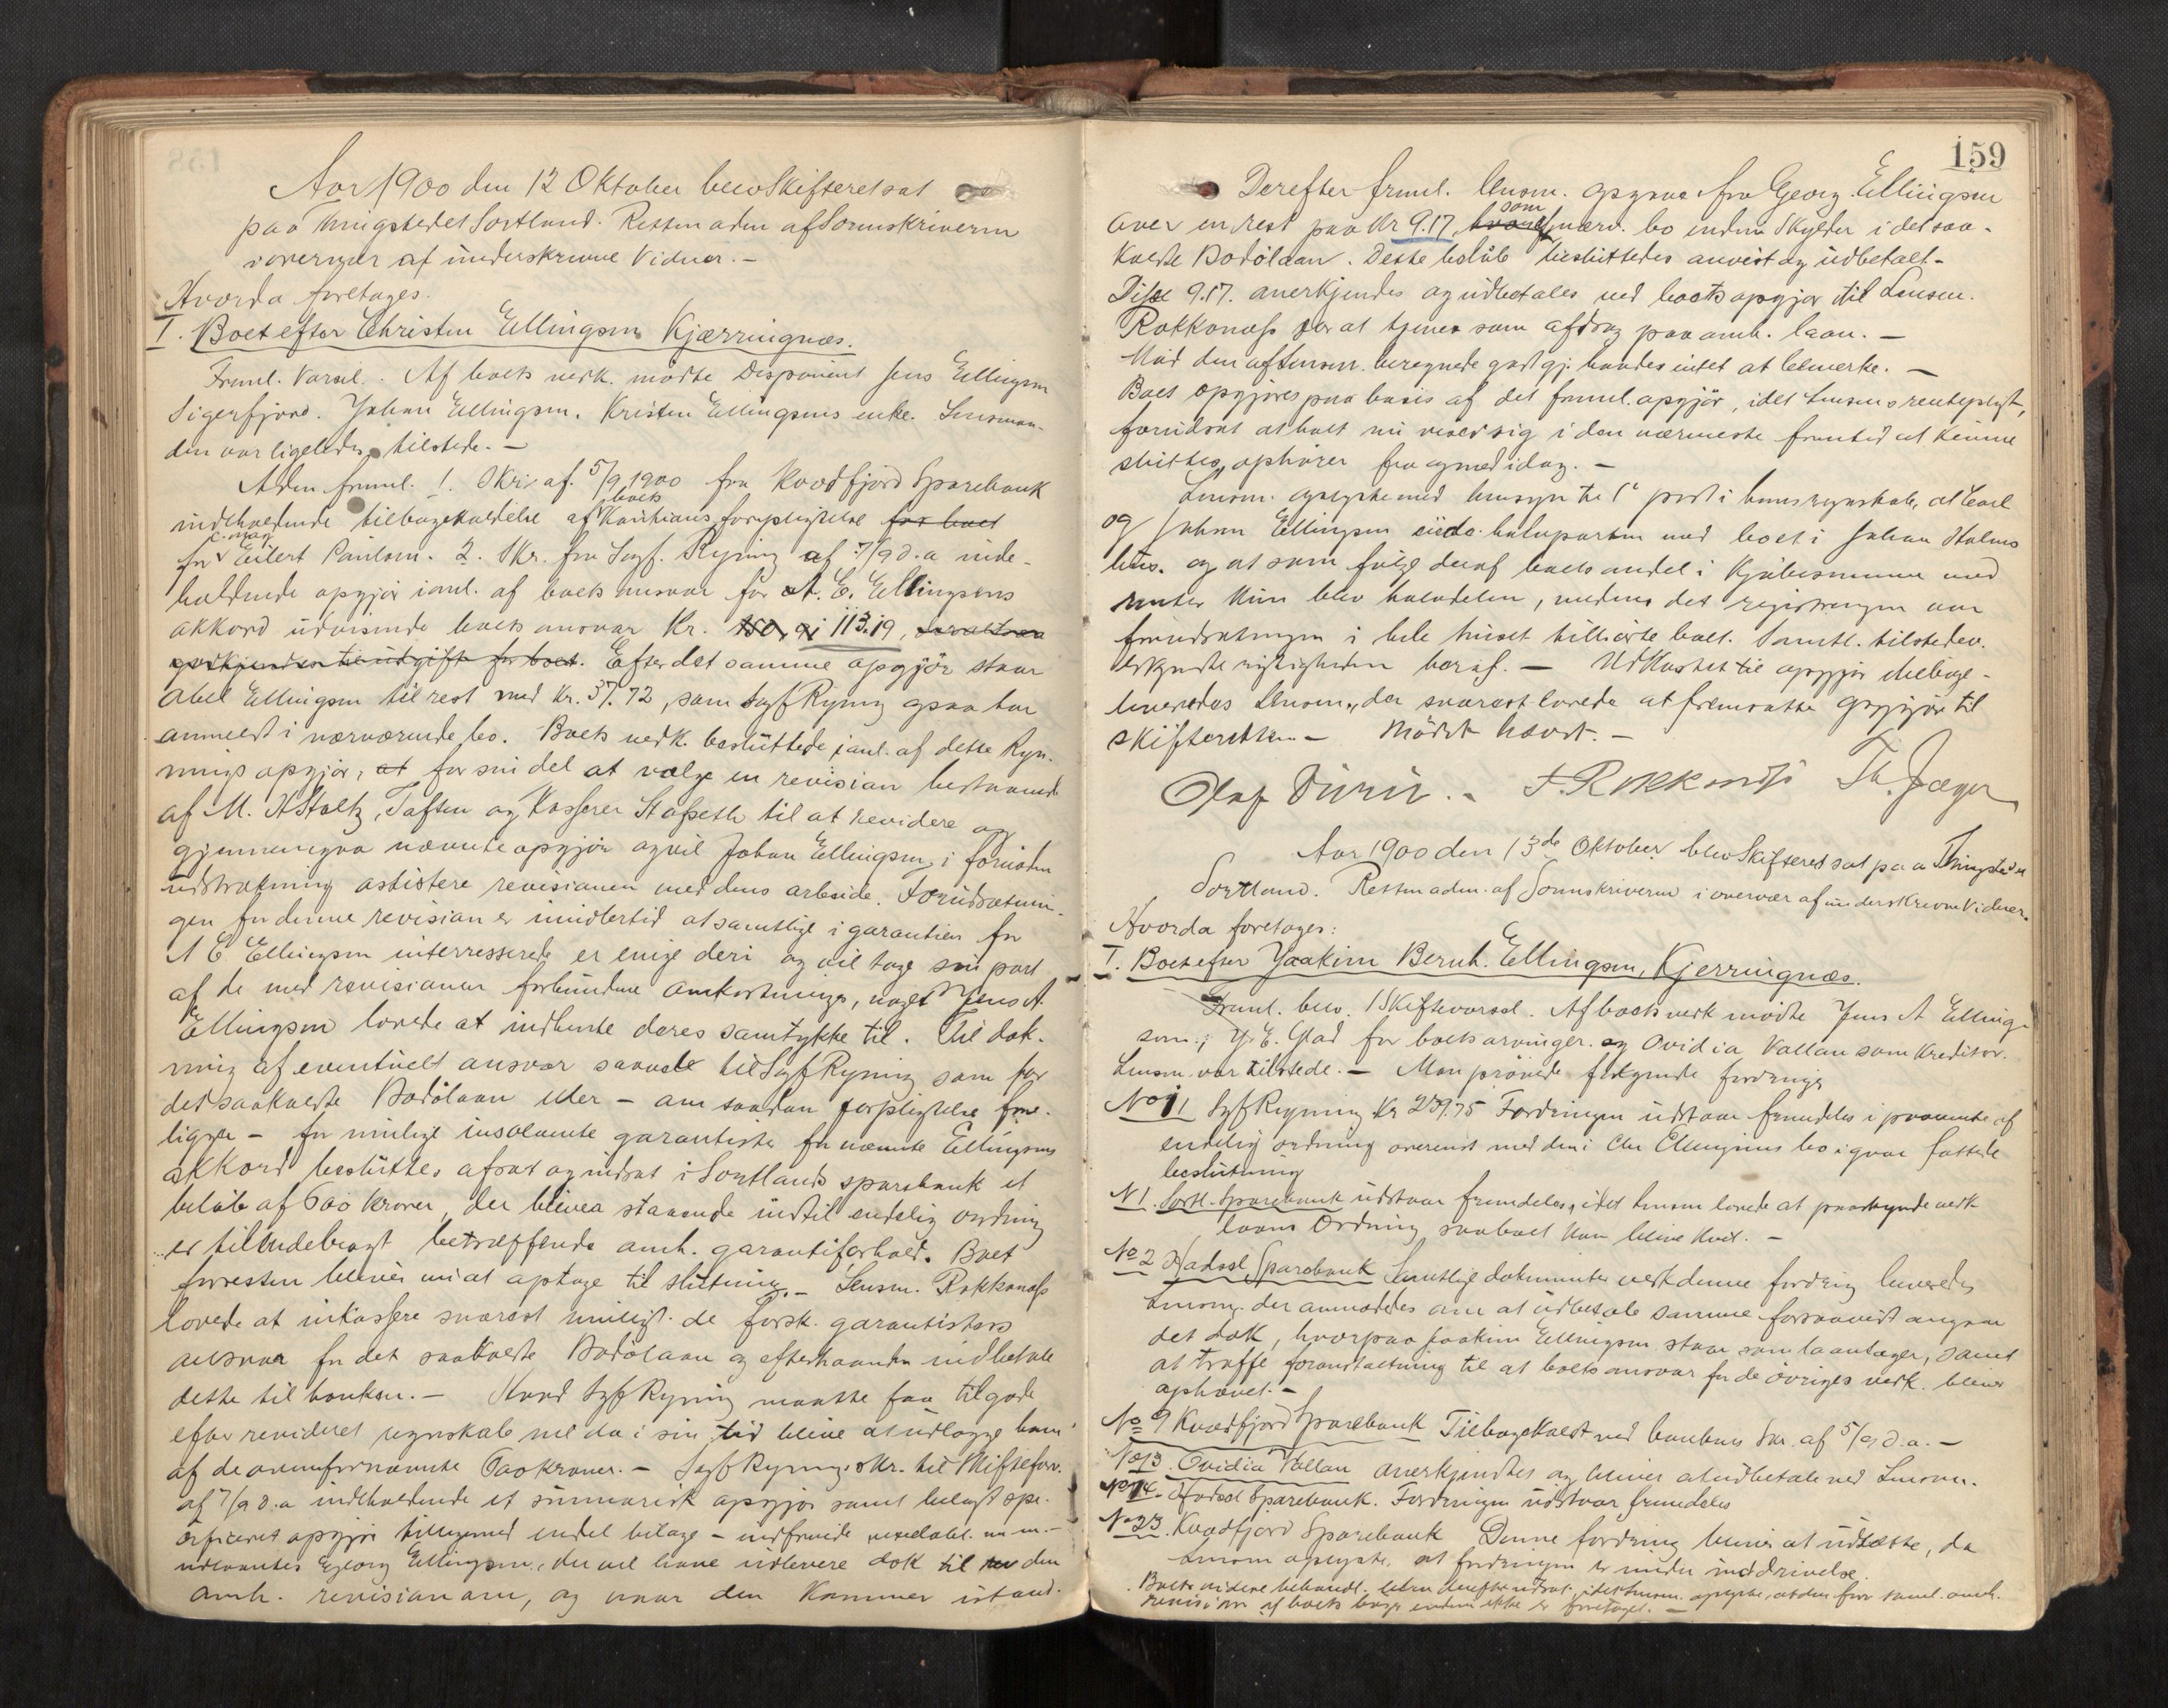 Aar 1900 den 12 Oktober blev Skifteret sat
paa Thingstedet Sortland. Retten adm af Sorenskriveren
i overvær af underskrevne Vidner. –
Hvorda foretages.
I. Boet efter Christen Ellingsen Kjærringnæs.
Freml. Varsel. Af boets vedk. mødte Disponent Jens Ellingsen
Sigerfjord. Johan Ellingsen. Kristen Ellingsens enke. Lensman-
den var ligeledes tilstede. –
Adm. freml. 1. Skr. af 5/9 1900 fra Kvædfjord Sparebank
indeholdende tilbagekaldelse af boets Kautions forpligtelse for boet
for Eilert Paulsen. 2. Skr. fra Sagf. Ryning af 7/9 d.a inde-
holdende opgjør i anl. af boets ansvar for A. E. Ellingsens
akkord udvisende boets ansvar Kr. 113.19,
godkjendes til udgift for boet. Efter det samme opgjør staar
Abel Ellingsen til rest med Kr. 37.72, som Sagf Ryning ogsaa har
anmeldt i nærværende bo. Boets vedk. besluttede i anl. af dette Ryn-
nings opgjør, at for sin del at vælge en revision bestaaende
af M. A Stoltz, Toften og Kasserer Stapseth til at revidere og
gjennemgaa nævnte opgjør og vil Johan Ellingsen i fornøden
udstrækning assistere revisionen med dens arbeide. Forudsætnin-
gen for denne revision er imidlertid at samtlige i garantien for
A E. Ellingsen interresserede er enige deri og vil tage sin part
af de med revisionen forbundne omkostninger, noget Jens A.
Ellingsen lovede at indhente deres samtykke til. Til dæk-
ning af eventuelt ansvar saavel til Sagf Ryning som for
det saakaldte Bodølaan eller – om saadan forpligtelse fore-
ligger – for mulige insolvente garantister for nævnte Ellingsens
akkord besluttes afsat og indsat i Sortlands sparebank et
beløb af 600 kroner, der bliver staaende indtil endelig ordning
er tilendebragt betræffende omh. garantiforhold. Boet
forresten bliver nu at optage til slutning. – Lensm. Rokkonæss
lovede at inkassere snarest muligt de forsk. garantisters
ansvar for det saakaldte Bodølaan og efterhaanden indbetale
dette til banken. – Hvad Sagf Ryning maatte faa tilgode
efter revideret regnskab vil da i sin tid blive at udlægge ham
af de ovenfornævnte 600 kroner. – Sagf Rynings skr. til Skifteforv.
af 7/9 d.a indeholdende et summarisk opgjør samt bilagt spe-
cificeret opgjør tilligemed endel bilage – indfriede vexelobl. m m. –
udleveredes Georg Ellingsen, der vil have udlevere dok til den
omh. revision om, og naar den kommer istand.
159
Derefter freml. Lensm. opgave fra Georg Ellingsen
over en rest paa Kr 9.17, som nærv. bo endnu skylder i det saa-
kaldte Bodølaan. Dette beløb besluttedes anvist og udbetalt. –
Disse 9.17. anerkjendes og udbetales ved boets opgjør til Lensm.
Rokkonæss for at tjene som afdrag paa omh. laan. –
Mod den af Lensm. beregnede godtgj. havdes intet at bemerke. –
Boet opgjøres paa basis af det freml. opgjør, idet Lensms rentepligt,
forudsat at boet nu viser sig i den nærmeste fremtid at kunne
sluttes, ophører fra og med idag. –
Lensm. oplyste med hensyn til 1e post i hans regnskab, at Carl
og Johan Ellingsen eiede halvparten med boet i Johan Holms
hus. og at som følge deraf boets andel i Kjøbesummen med
renter kun blev halvdelen, medens det registreringen var
forudsætningen i hele huset tilhørte boet. Samtl. tilstedev.
erkjendte rigtigheden heraf. – Udkastet til opgjør tilbage-
leveredes Lensm., der snarest lovede at fremsætte opgjør til
Skifteretten – Mødet hævet. –
Olaf Duriu. F. Rokkonæss Th. Jæger
Aar 1900 den 13de Oktober blev Skifteret sat paa Thingstedet
Sortland. Retten adm. af Sorenskriveren i overvær af underskrevne Vidner.
Hvorda foretages:
I. Boet efter Joakim Bernh. Ellingsen, Kjerringnæs.
Freml. blev. 1 Skiftevarsel. Af boets vedk mødte Jens A Elling-
sen; J. E. Glad for boets arvinger. og Ovidia Vollan som Kreditor.
Lensm. var tilstede. – Man prøvede følgende fordringer
No 11 Sagf Ryning Kr 259.75 Fordringen udstaar fremdeles i paavente af
endelig ordning overenst med den i Chr Ellingsens bo igaar fattede
beslutning
N 1. Sortl. Sparebank udstaar fremdeles, idet Lensm lovede at paaskynde vedk
laans Ordning saa boet kan blive kvit. –
No 2 Hadsel Sparebank Samtlige dokumenter vedk denne fordring leveredes
Lensm. der anmodedes om at udbetale samme forsaavidt angaar
det dok, hvorpaa Joakim Ellingsen staar som laantager, samt
at træffe foranstaltning til at boets ansvar for de øvriges vedk. bliver
ophævet. –
No 9 Kvædfjord Sparebank Tilbagekaldt ved bankens skr. af 5/9 d.a. –
No 13. Ovidia Vollan anerkjendtes og bliver at udbetale ved Lensm.
No 14. Hadsel Sparebank. Fordringen udstaar fremdeles
No 23. Kvædfjord Sparebank Denne fordring bliver at udsætte, da
Lensm oplyste, at fordringen er under inddrivelse.
Boets videre behandl. blev derefter udsat, idet Lensm. oplyste, at den for saml. omh.
revision af boets bøger endnu ikke er foretaget. –